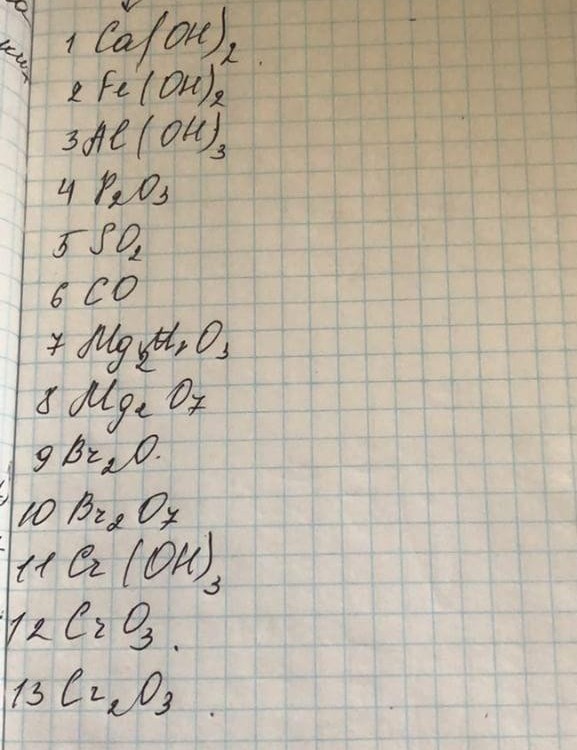 1 Ca(OH)2
2 Fe(OH)2
3 Al(OH)3
4 P2O3
5 SO2
6 CO
7 O3
8 Mg2O7
9 Br2O.
10 Br2O7
11 Cr(OH)3
12 CrO3.
13 Cr2O3.